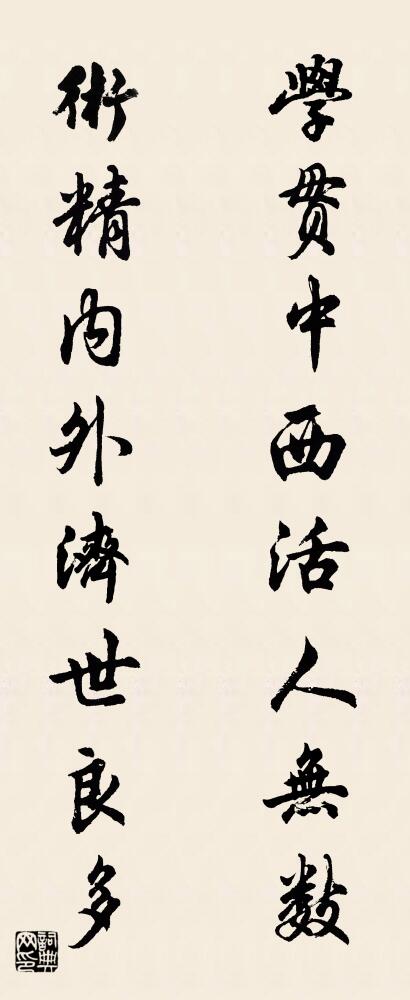 學貫中西活人無数
術精內外濟世良多
詞典网印